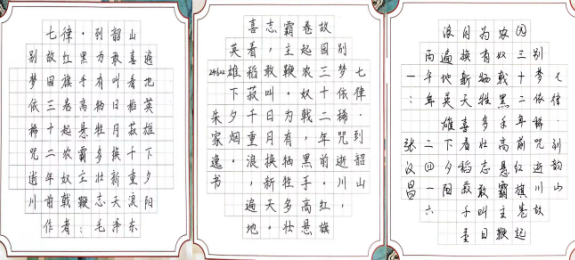 七律·到韶山
别故红黑为敢喜遍
梦国旗手有叫看地
依三卷高牺日稻英
稀十起悬牲月菽雄
咒二农霸多换千下
逝年奴主壮新重夕
川前戟鞭志天浪阳
作者:毛泽东
七律·到韶山
别梦依稀咒逝川,
故国三十二年前。红旗
卷起农奴戟,黑手高悬
霸主鞭。为有牺牲多壮
志,敢叫日月换新天。
喜看稻菽千重浪,遍地
英雄下夕烟。
朱家逸书
七律·到韶山
别梦依稀咒逝川故
国三十二年前红旗卷起
农奴戟黑手高悬霸主鞭
为有牺牲多壮志敢叫日
月换新天喜看稻菽千重
浪遍地英雄下夕阳